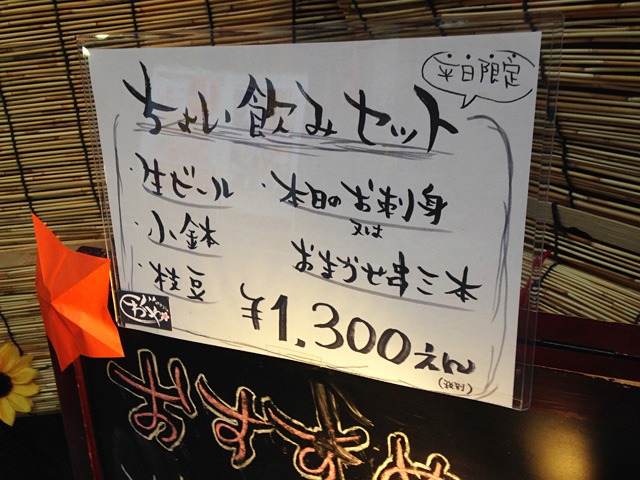 平日限定
ちょい飲みセット
・生ビール
・小鉢
・枝豆
・本日のお刺身
又は
おまかせ串三本
¥1,300えん
(税別)
おすすめ